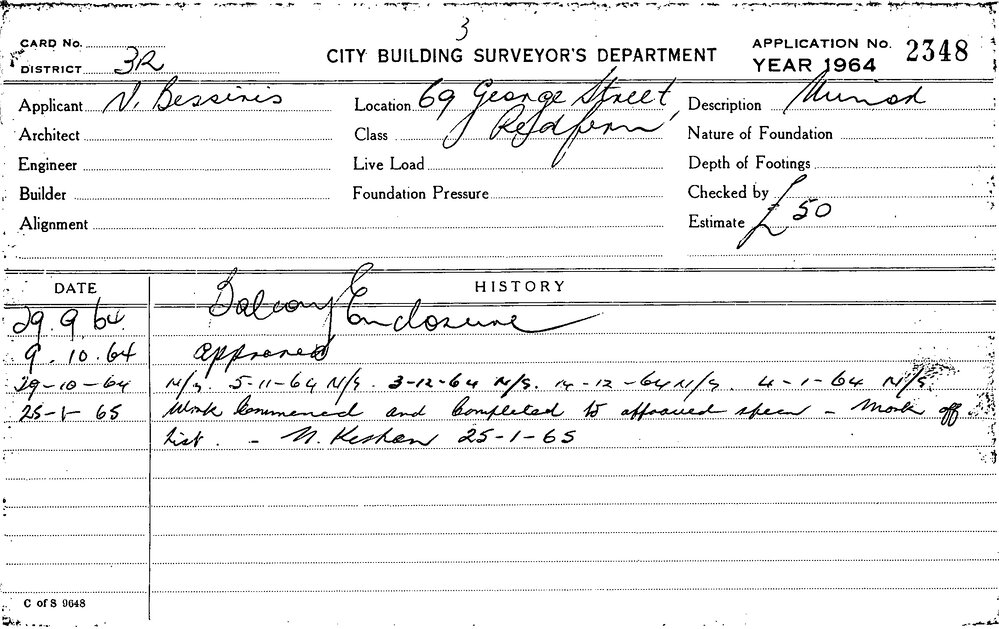 3
CARD No.
DISTRICT 3R
CITY BUILDING SURVEYOR'S DEPARTMENT
APPLICATION No. 2348
YEAR 1964
Applicant N. Bessinis
Location 69 George Street,
Description Minor
Architect
Class Redfern
Nature of Foundation
Engineer
Live Load
Depth of Footings
Builder
Foundation Pressure
Checked by
Alignment
Estimate £50
DATE
HISTORY
29.9.64 Balcony Enclosure
9.10.64 Approved
29-10-64 N/S. 5-11-64 N/S. 3-12-64 N/S. 14-12-64 N/S. 4-1-64 N/S.
25-1-65 Work Commenced and Completed to approved specn - Mark off
list. - N. 25-1-65
C of S 9648